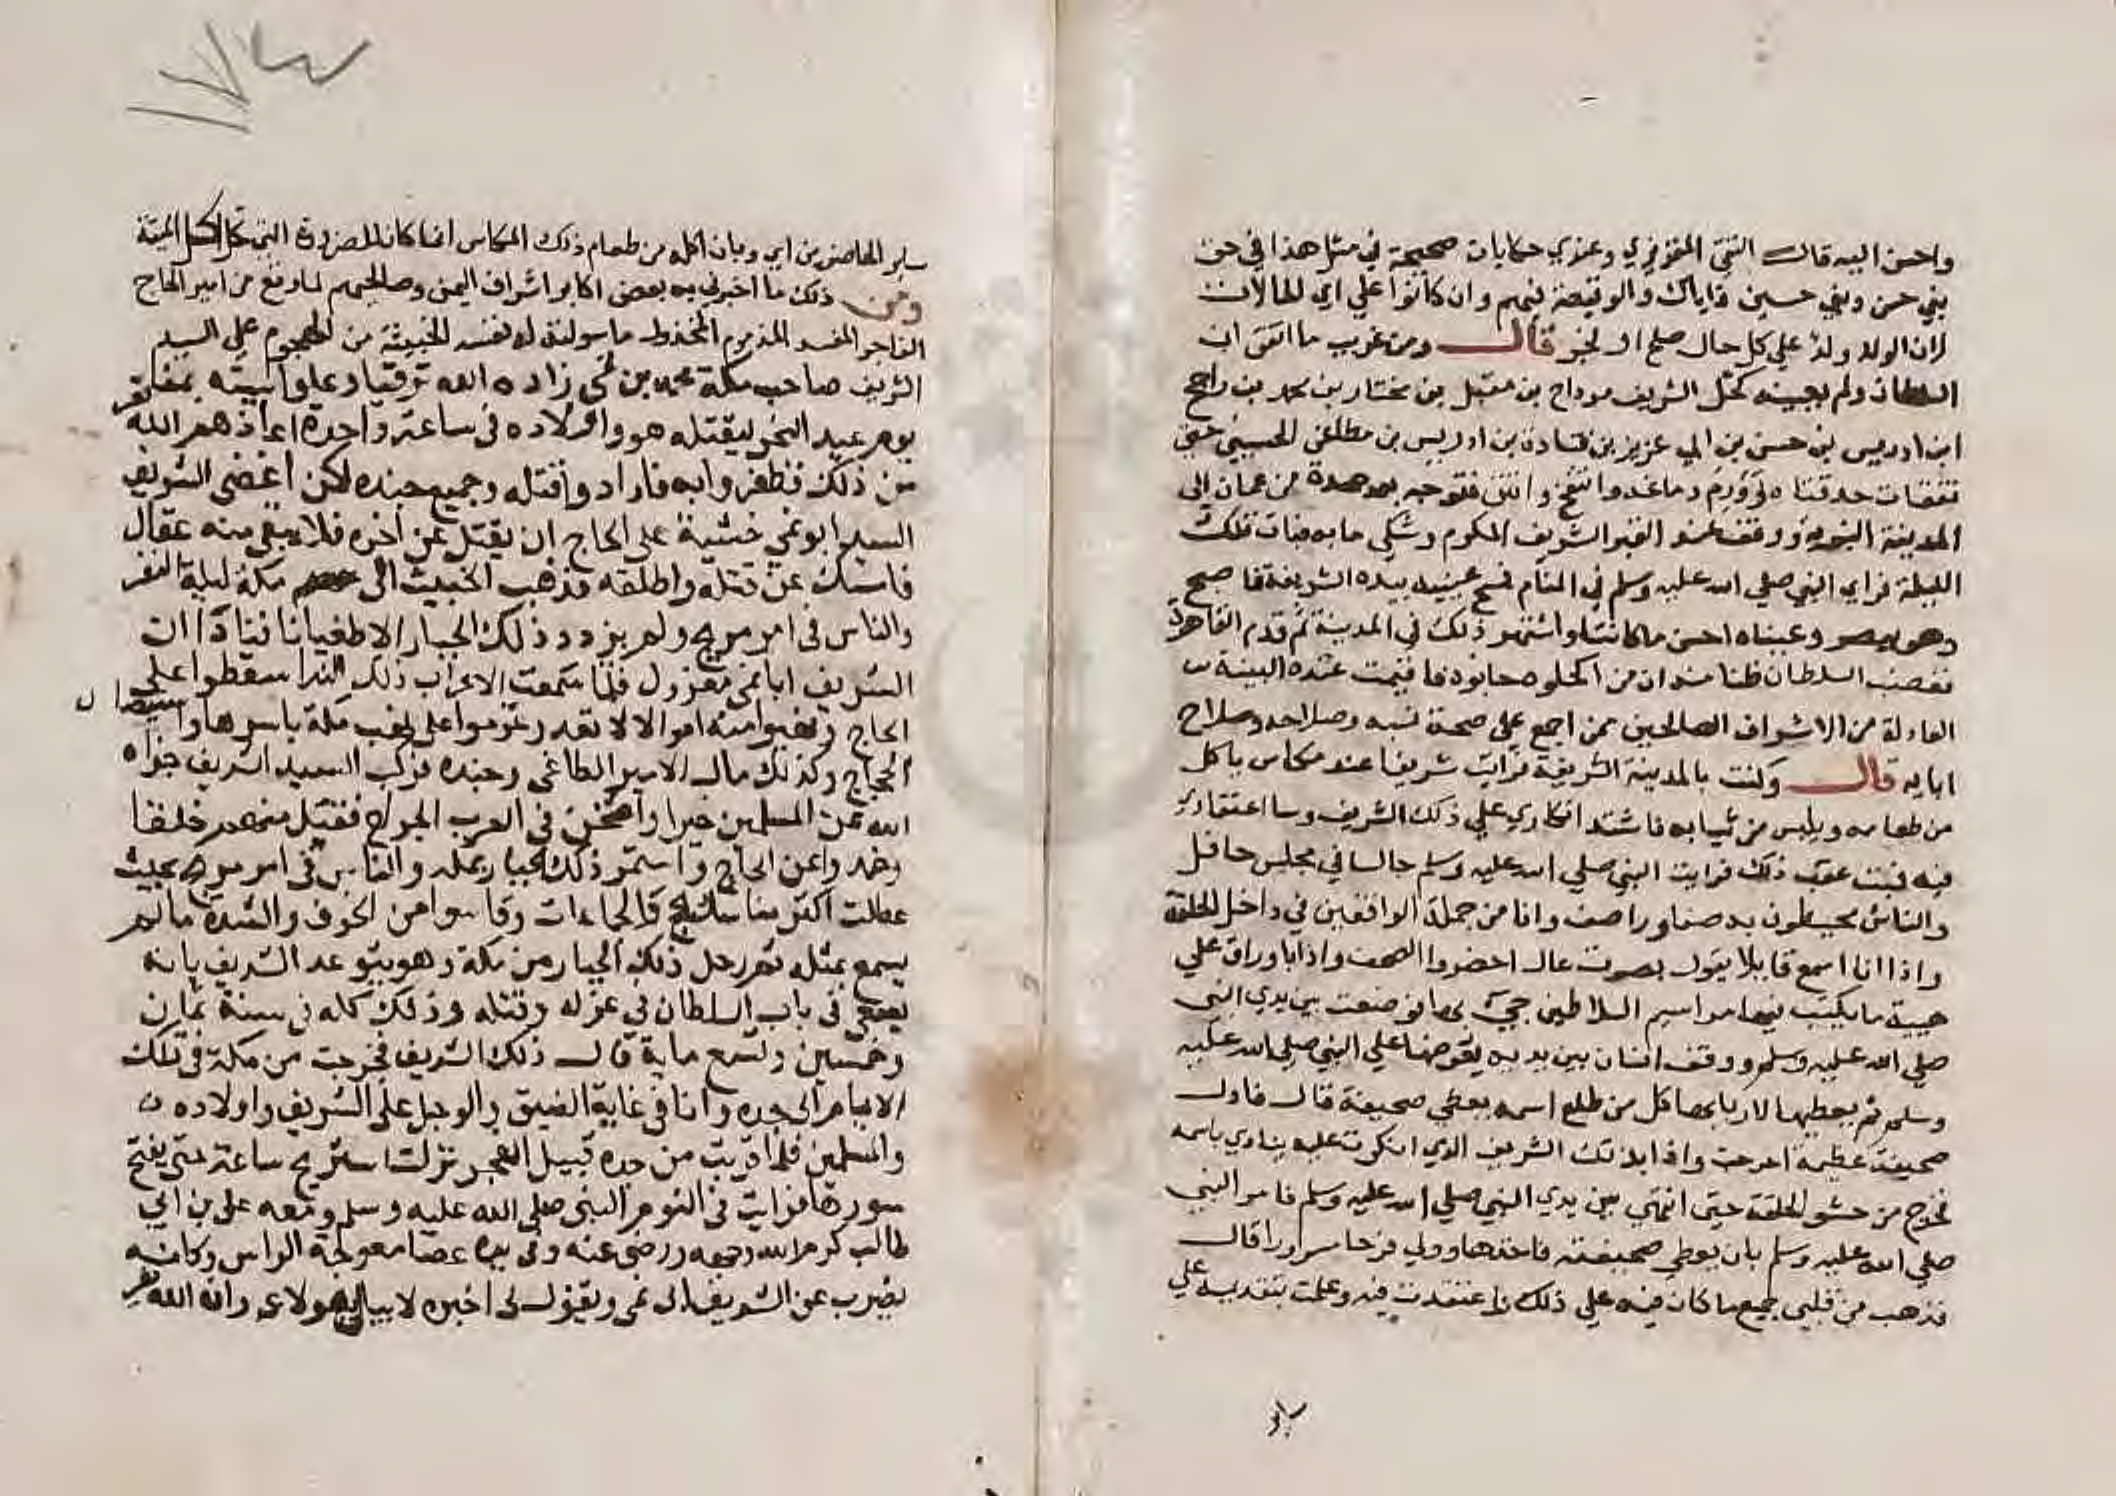 واحسن اليه قال التقي المقريزي وعندي حكايات صحيحة في مثل هذا في حق
بني حسن وبني حسين فاياك والوقيعة فيهم وان كانوا على اي الحالات
لان الولد ولد علي كل حال صلح او فجر قال ومن غريب ما اتفق ان
السلطان ولم يعينه كحل الشريف مرداح بن مقبل بن مختار بن محمد بن راجح
ابن ادريس بن حسن بن ابي عزيز بن قتادة بن ادريس بن مطاعن الحسيني حتى
تفقات حدقتاه وورم دماغه وانتفخ وانتن فتوجه بعد مدة من عمان الى
المدينة النبوية ووقف عند القبر الشريف المكرم وشكى ما به فبات تلك
الليلة فراي النبي صلى الله عليه وسلم في المنام فمسح عينيه بيده الشريفة فاصبح
وهو يبصر وعيناه احسن ما كانتا واشتهر ذلك في المدينة ثم قدم القاهرة
فغضب السلطان ظنا منه ان من اكحلوه حابوه فاقيمت عنده البينة
العادلة من الاشراف الصالحين ممن اجمع على صحة نسبه وصلاحه وصلاح
ابايه قال وكنت بالمدينة الشريفة فرايت شريفا عند مكاس ياكل
من طعامه ويلبس من ثيابه فاشتد انكاري علي ذلك الشريف وسا اعتقادي
فيه فبت عقب ذلك فرايت النبي صلي الله عليه وسلم جالسا في مجلس حافل
والناس محيطون به صفا ورا صف وانا من جملة الواقفين في داخل الحلقة
واذا انا اسمع قايلا يقول بصوت عال احضروا الصحف واذا باوراق علي
هيية ما يكتب فيها مراسيم السلاطين جيء بها فوضعت بين يدي النبي
صلي الله عليه وسلم ووقف انسان بين يديه يعرضها علي النبي صلي الله عليه
وسلم ثم يعطيها لاربابها فكل من طلع اسمه يعطي صحيفة قال فاول
صحيفة عظيمة اخرجت واذا بذلك الشريف الذي انكرت عليه ينادي باسمه
فخرج من حشو الحلقة حتى انتهى بين يدي النبي صلي الله عليه وسلم فامر النبي
صلي الله عليه وسلم بان يعطي صحيفته فاخذها وولي فرحا مسرورا قال
فذهب من قلبي جميع ما كان فيه علي ذلك واعتقدت فيه وعلمت بتقديمه علي
ساير الحاضرين اي وبان اكله من طعام ذلك المكاس انما كان للضرورة التي تحل اكل الميتة
ومن ذلك ما اخبرني به بعض اكابر اشراف اليمن وصالحيهم لما وقع من امير الحاج
الفاجر المفسد المذموم المخذول ما سولته له نفسه الخبيثة من الهجوم على السيد
الشريف صاحب مكة محمد بن نمي زاده الله ترقيا وعلوا ببيته بمنى
يوم عيد النحر ليقتله هو واولاده في ساعة واحدة اعاذهم الله
من ذلك فظفروا به فاراد واقتله وجميع جنده لكن اغضى الشريف
السيد ابو نمي خشية على الحاج ان يقتل عن اخره فلا يبقى منه عقال
فامسك عن قتله واطلقه فذهب الخبيث الى مكة ليلة النفر
والناس في امر مريج ولم يزدد ذلك الجبار الا طغيانا فنادا ان
الشريف ابا نمي معزول فلما سمعت الاعراب ذلك الندا سقطوا على
الحاج ونهبوا منه اموالا لا تعد وعزموا على نهب مكة باسرها واستيصال
الحجاج وكذلك مال الامير الطاغي وجنده فركب السيد الشريف جزاه
الله عن المسلمين خيرا واثخن في العرب الجراح فقتل منهم خلقا
وخمدوا عن الحاج واستمر ذلك الجبار بمكة والناس في امر مريج بحيث
عطلت اكثر مناسك الحج والجماعات وقاسوا من الخوف والشدة ما لم
يسمع بمثله ثم رحل ذلك الجبار من مكة وهو يتوعد الشريف بانه
يسعى في باب السلطان في عزله وقتله وذلك كله في سنة ثمان
وخمسين وتسع ماية قال ذلك الشريف فخرجت من مكة في تلك
الايام الى جده وانا في غاية الضيق والوجل على الشريف واولاده
والمسلمين فلما قربت من جدة قبيل الفجر نزلت استريح ساعة حتى يفتح
سورها فرايت في النوم النبي صلى الله عليه وسلم ومعه علي بن ابي
طالب كرم الله وجهه ورضي عنه وفي يده عصا معوجة الراس وكانه
يضرب عن الشريف ابى نمي ويقول لى اخبره لا يبالي بهولاء وان الله